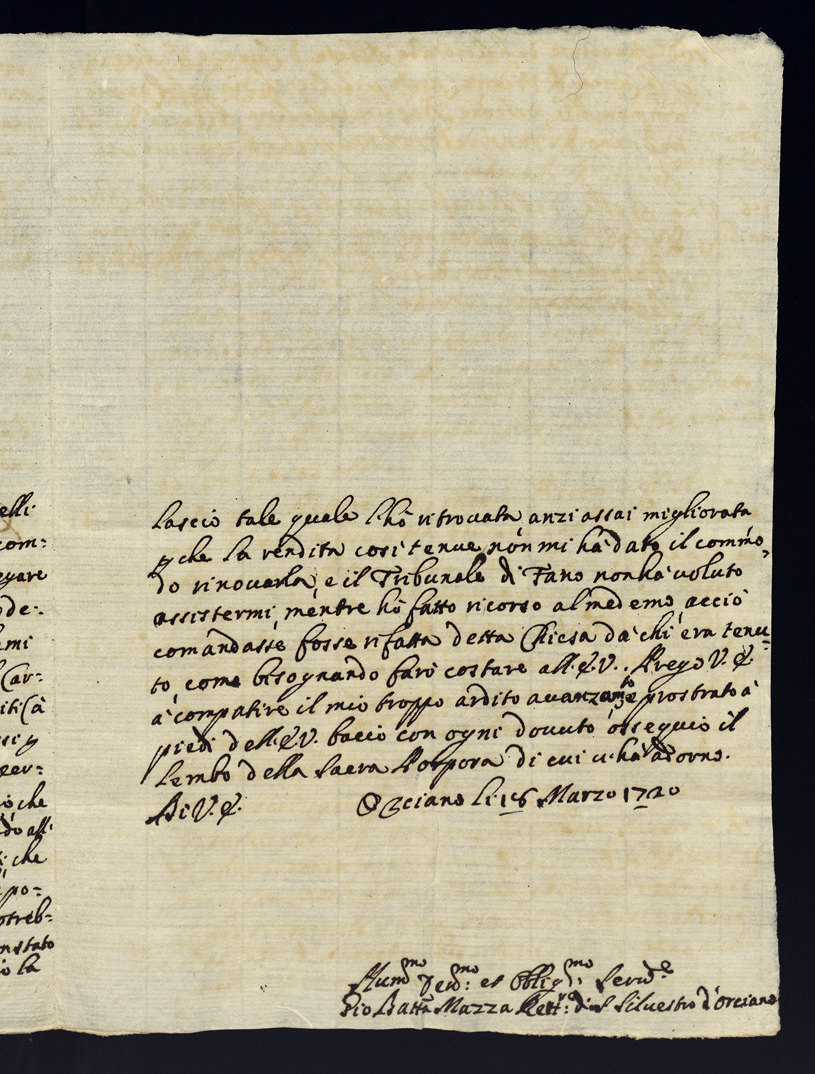 elli
com:
egare
de:
emi
Car:
iti Cà
sei ꝑ
per:
iò che
dò all:
che
po=
otreb=
nstato
io la
lascio tale quale l'hò ritrovata, anzi assai migliorata
ꝑche la rendita così tenue nòn mi hà dato il commo,
do rinovarla, e il Tribunale di Fano non hà voluto
assistermi, mentre hò fatto ricorso al medemo, acciò
comandasse, fosse rifatta detta Chiesa da' chi era tenu=
to, come bisognando farò costare all'E.V.. Prego V.E.
à compatire il mio troppo ardito avanzamto, e prostrato à
piedi dell'E.V. baccio con ogni dovuto ossequio il
Lembo della Sacra Porpora di cui và adorno.
Di V.E. Orciano li 16 Marzo 1720
Hummo Devmo: et Obligmo: Servre
Gio Batta Mazza Rettre: di S Silvestro d'Orciano